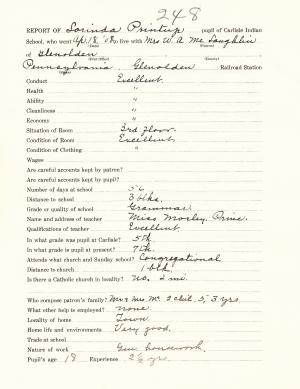 248
REPORT OF Lorinda Printup pupil of Carlisle Indian
School, who went Apr. 8, '08, to live with Mrs W. A. Mc Laughlin
(Date) (Patron)
of Glenolden
(Post Office) (County)
Pennsylvania. Glenolden Railroad Station
Conduct Excellent.
Health "
Ability "
Cleanliness "
Economy "
Situation of Room 3rd floor.
Condition of Room Excellent.
Condition of Clothing "
Wages
Are careful accounts kept by patron?
Are careful accounts kept by pupil?
Number of days at school 56
Distance to school 3 blks.
Grade or quality of school Grammar.
Name and address of teacher Miss Morley, Prin.
Qualifications of teacher Excellent.
In what grade was pupil at Carlisle? 5th.
In what grade is pupil at present? 7th.
Attends what church and Sunday school? Congregational
Distance to church 1 blk.
Is there a Catholic church in locality? No, 2 mi.
Who compose patron's family? Mr & Mrs Mc 2 chil. 5, 3 yrs.
What other help is employed? none.
Locality of home Town
Home life and environments Very good.
Trade at school
Nature of work Gen. housework.
Pupil's age 18 Experience 2½ yrs.